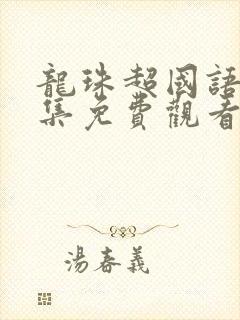 龍珠超國語
集免費觀看
湯春義